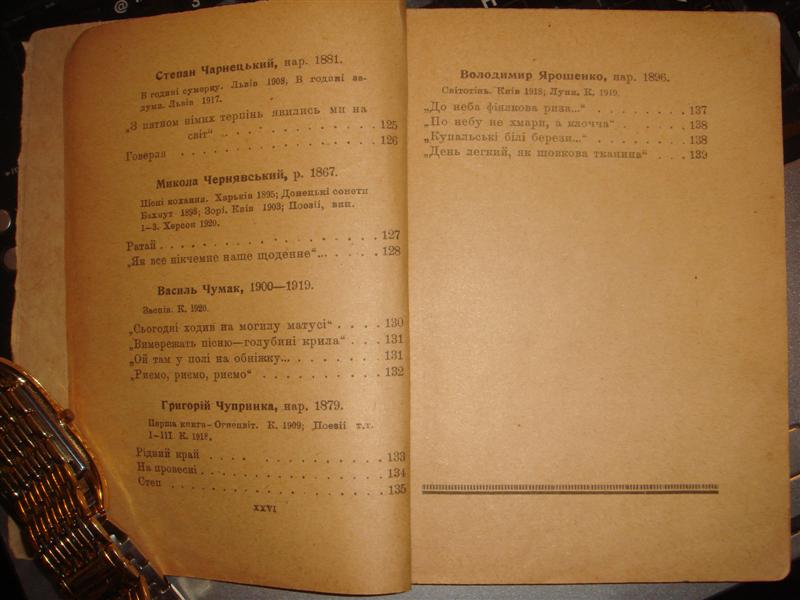 Степан Чарнецький, нар. 1881.
В годині сумерку. Львів 1908; В годині за-
думи. Львів 1917.
„З пятном німих терпінь явились ми на
світ“ . . . . . . . . . . . 125
Говерля . . . . . . . . . . . . 126
Микола Чернявський, р. 1867.
Пісні кохання. Харьків 1895; Донецькі сонети
Бахмут 1898; Зорі. Київ 1903; Поезії, вип.
1—3. Херсон 1920.
Ратай . . . . . . . . . . . . . 127
„Як все нікчемне наше щоденне“... . . . . 128
Василь Чумак, 1900—1919.
Заспів. К. 1920.
„Сьогодні ходив на могилу матусі“ . . . . 130
„Вимережать пісню—голубині крила“ . . . 131
„Ой там у полі на обніжку... . . . . . . . 131
„Риємо, риємо, риємо“ . . . . . . . . . 132
Григорій Чупринка, нар. 1879.
Перша книга—Огнецвіт. К. 1909; Поезії т.т.
I—III. К. 1918.
Рідний край . . . . . . . . . . . 133
На провесні . . . . . . . . . . . . 134
Степ . . . . . . . . . . . . . 135
XXVI
Володимир Ярошенко, нар. 1896.
Світотінь. Київ 1918; Луни. К. 1919.
„До неба фіялкова риза...“ . . . . . . . . 137
„По небу не хмари, а клочча“ . . . . . . 138
„Купальські білі берези...“ . . . . . . . 138
„День легкий, як шовкова тканина“ . . . . 139